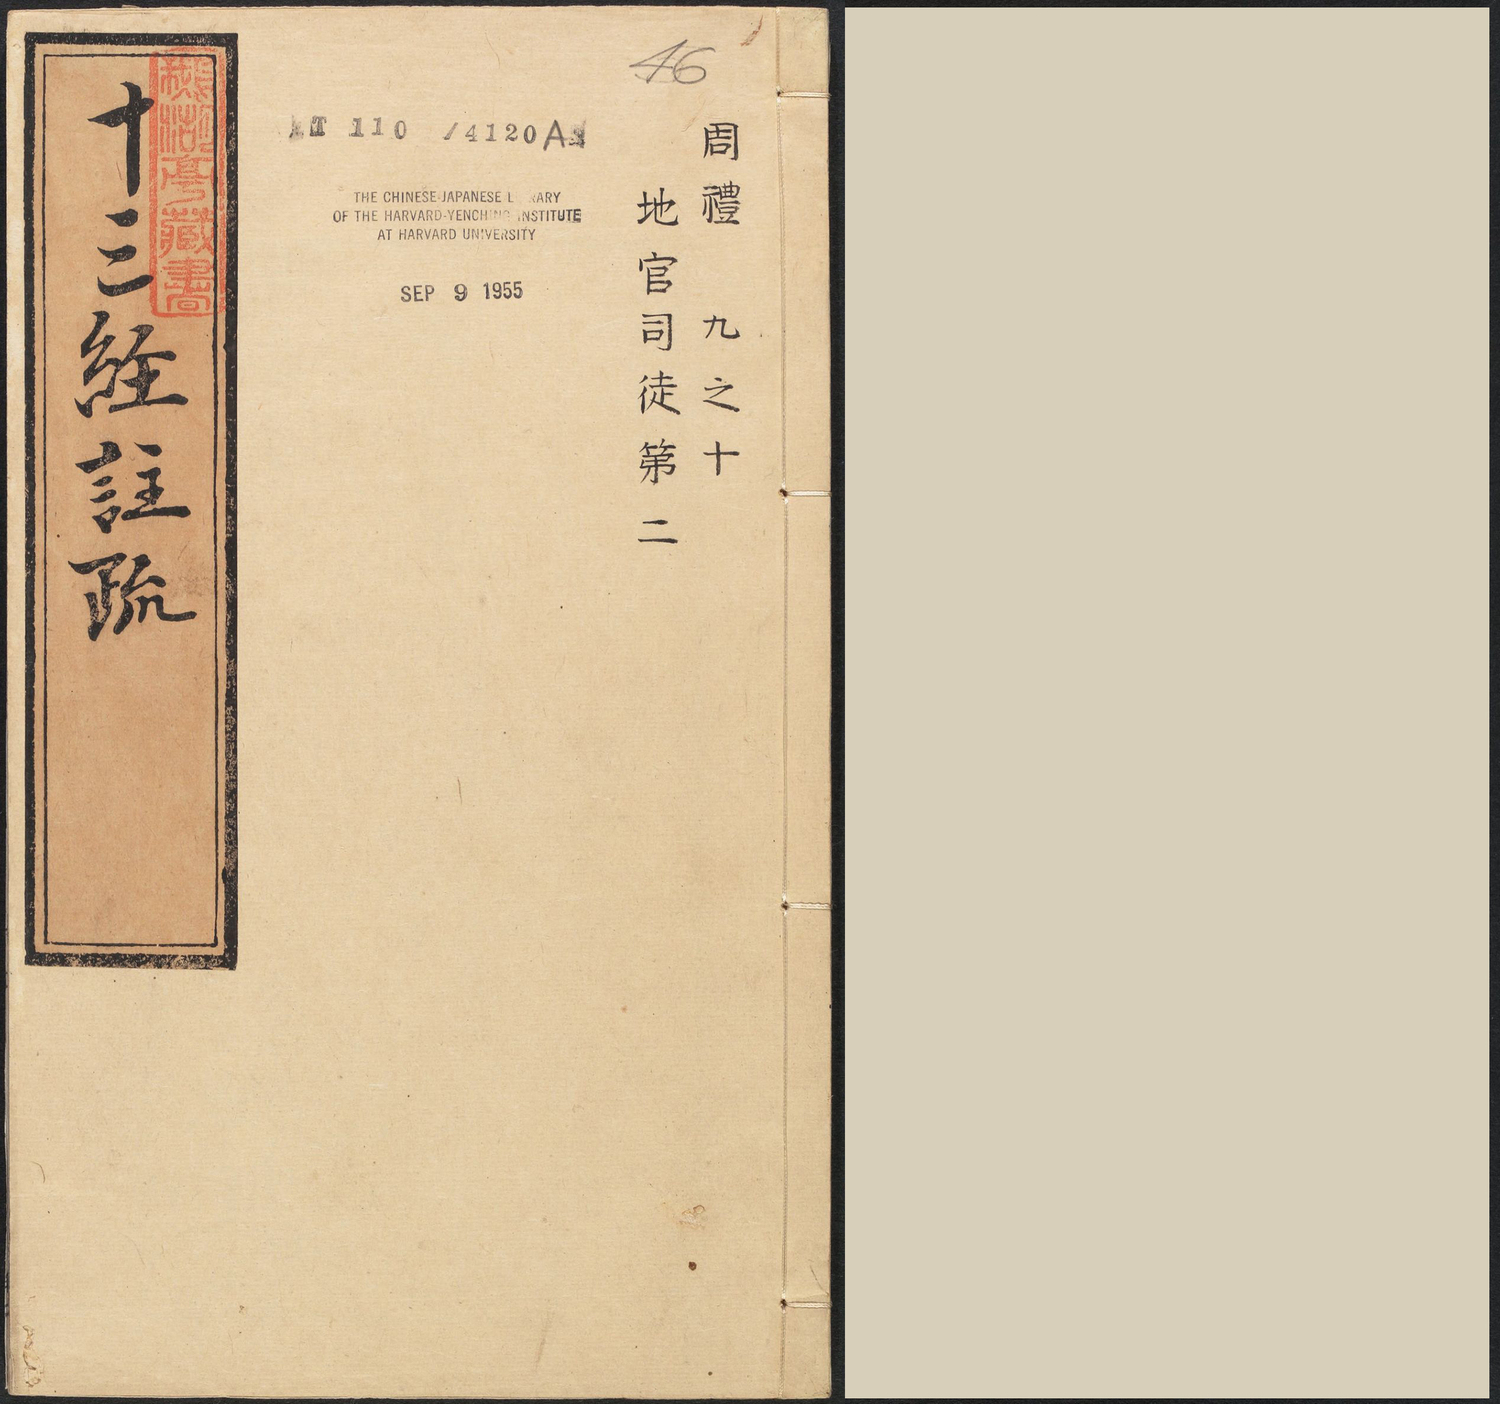 46
周禮 九之十
地官司徒第二
T 110 /4120A
THE CHINESE-JAPANESE L RARY
OF THE HARVARD-YENCHING INSTITUTE
AT HARVARD UNIVERSITY
SEP 9 1955
十三経註疏
湖亭藏書